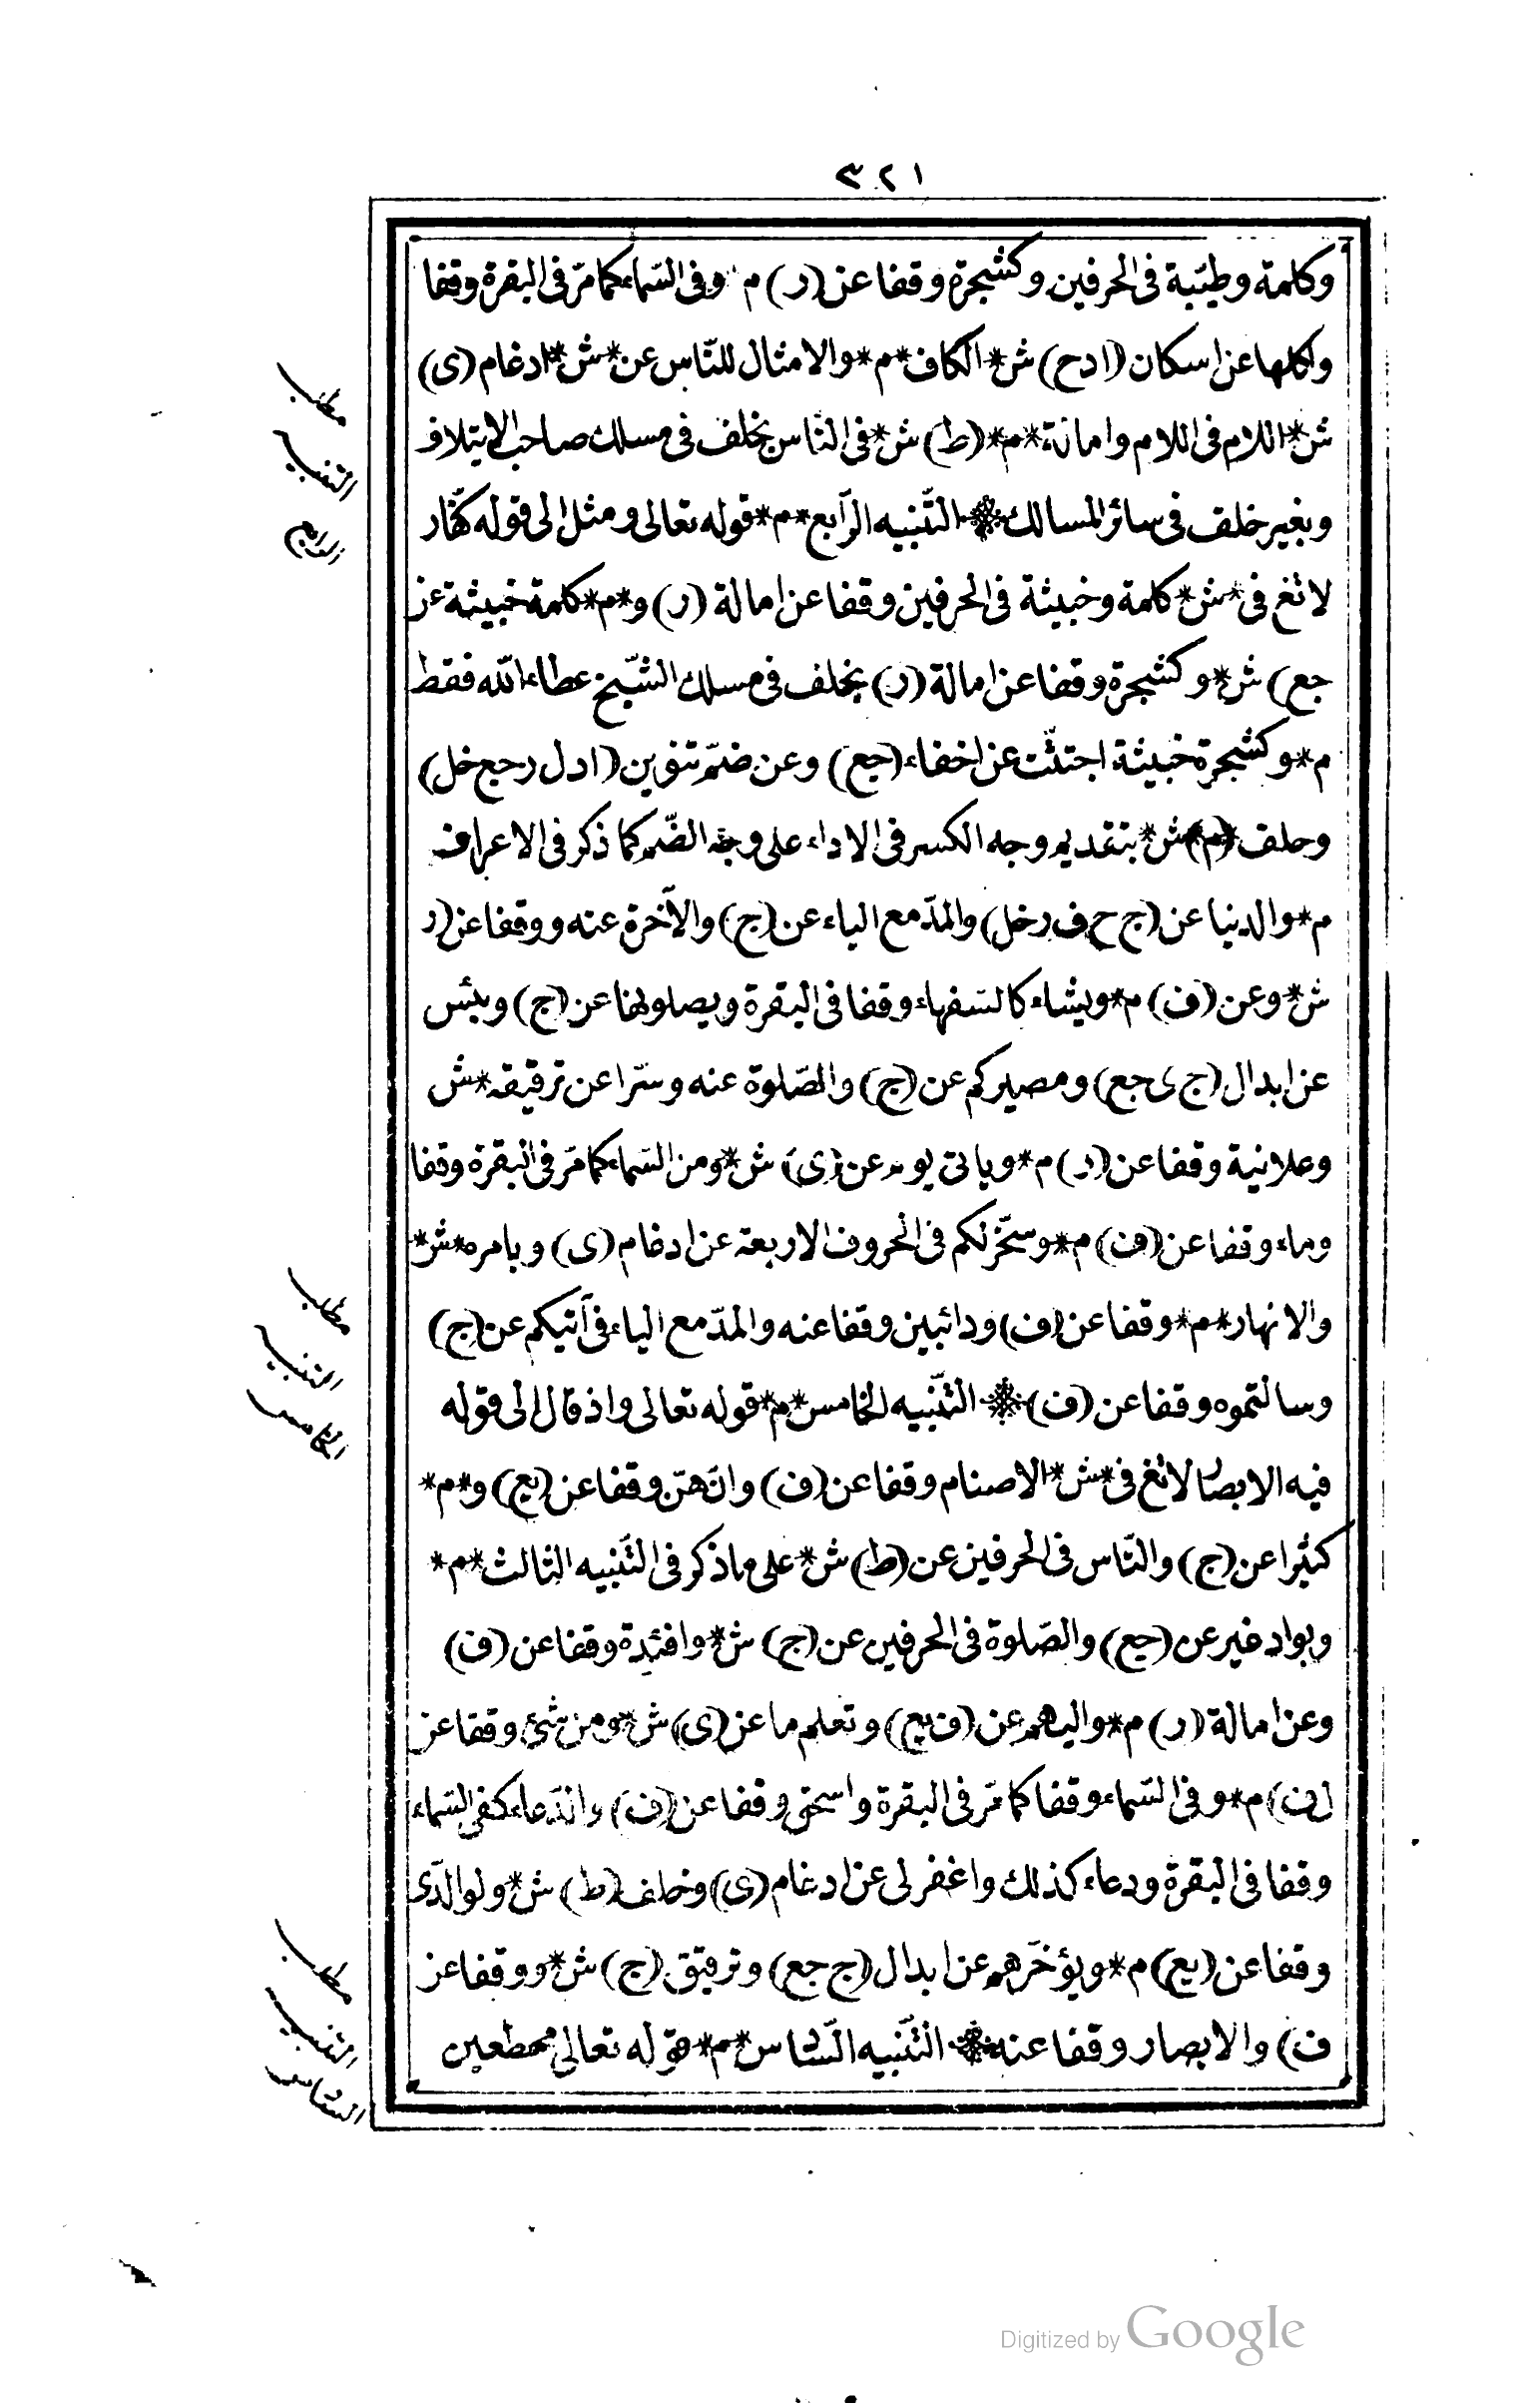 ٣٢١
وكلمة وطيّبة فى الحرفين وكشجرة وقفا عن (ر) م * وفى السّماء كما مرّ فى البقرة وقفا
واكلها عن اسكان (ادح) ش * الكاف * م * والامثال للنّاس عن * ش * ادغام (ى)
ش * اللام فى اللام وامانة * م * (ط) ش * فى النّاس بخلف فى مسلك صاحب الايتلاف
وبغير خلف فى سائر المسالك * التّنبيه الرّابع * م * قوله تعالى ومثل الى قوله كفّار
لا تغ فى * ش * كلمة وخبيثة فى الحرفين وقفا عن امالة (ر) و * م * كلمة خبيثة عن
جع) ش * وكشجرة وقفا عن امالة (ر) بخلف فى مسلك الشّيخ عطاء الله فقط
م * وكشجرة خبيثة اجتثّت عن اخفاء (جع) وعن ضمّ تنوين (ادل رجع خل)
وخلف (م) ش * بتقديم وجه الكسر فى الاداء على وجه الضّم كما ذكر فى الاعراف
م * والدنيا عن (ج ح ف رخل) والمدّ مع الياء عن (ج) والآخرة عنه ووقفا عن (ر
ش * وعن (ف) م * ويشاء كالسّفهاء وقفا فى البقرة ويصلونها عن (ج) وبئس
عن ابدال (ج ى جع) ومصيركم عن (ج) والصّلوة عنه وسرّا عن ترقيقه * ش
وعلانية وقفا عن (ر) م * وياتى يوم عن (ى) ش * ومن السّماء كما مرّ فى البقرة وقفا
وماء وقفا عن (ف) م * وسخّر لكم فى الحروف الاربعة عن ادغام (ى) وبامره * ش *
والانهار * م * وقفا عن (ف) ودائبين وقفا عنه والمدّ مع الياء فى آتيكم عن (ج)
وسالتموه وقفا عن (ف) * التّنبيه الخامس * م * قوله تعالى واذ قال الى قوله
فيه الابصار لا تغ فى * ش * الاصنام وقفا عن (ف) وانّهنّ وقفا عن (يع) و * م *
كثيرا عن (ج) والنّاس فى الحرفين عن (ط) ش * على ما ذكر فى التّنبيه الثالث * م *
وبواد غير عن (جع) والصّلوة فى الحرفين عن (ج) ش * وافئدة وقفا عن (ف)
وعن امالة (ر) م * واليهم عن (ف يع) وتعلم ما عن (ى) ش * ومن شئ وقفا عن
(ف) م * وفى السّماء وقفا كما مرّ فى البقرة واسحق وقفا عن (ف) والدّعاء كفى السّماء
وقفا فى البقرة ودعاء كذلك واغفر لى عن ادغام (ى) وخلف (ط) ش * ولوالدّى
وقفا عن (يع) م * ويؤخّرهم عن ابدال (ج جع) وترقيق (ج) ش * ووقفا عن
ف) والابصار وقفا عنه * التّنبيه السّادس * م * قوله تعالى مهطعين
مطلب
التنبيه
الرابع
مطلب
التنبيه
الخامس
مطلب
التنبيه
السادس
Digitized by Google